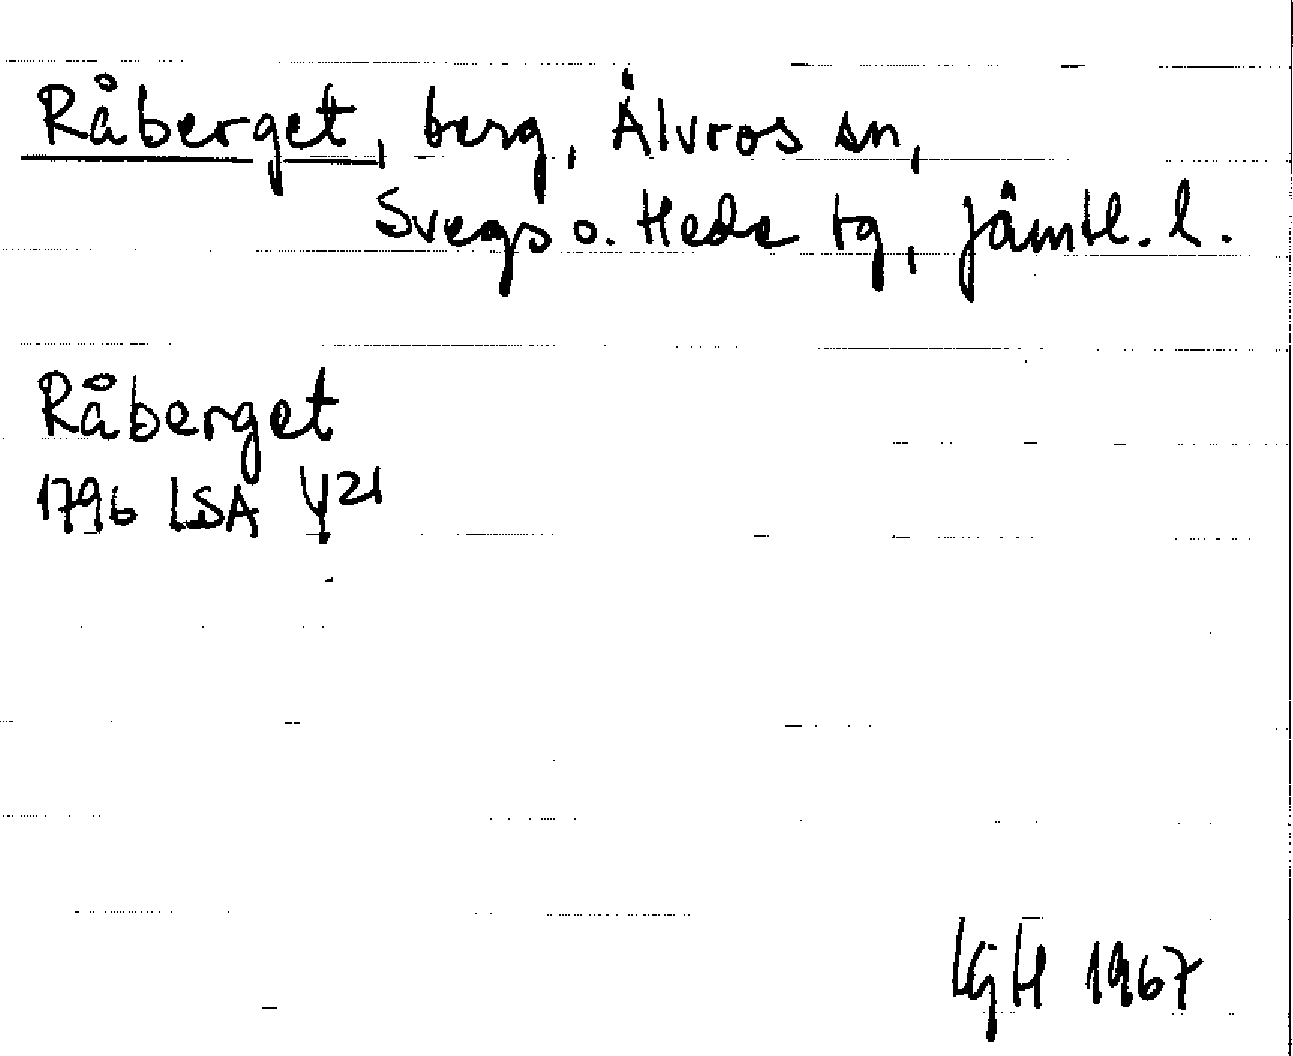 Råberget, berg, Älvros sn,
Svegs o. Heds tg, Jämtl. l.
Råberget
1796 LSA Y21
1967